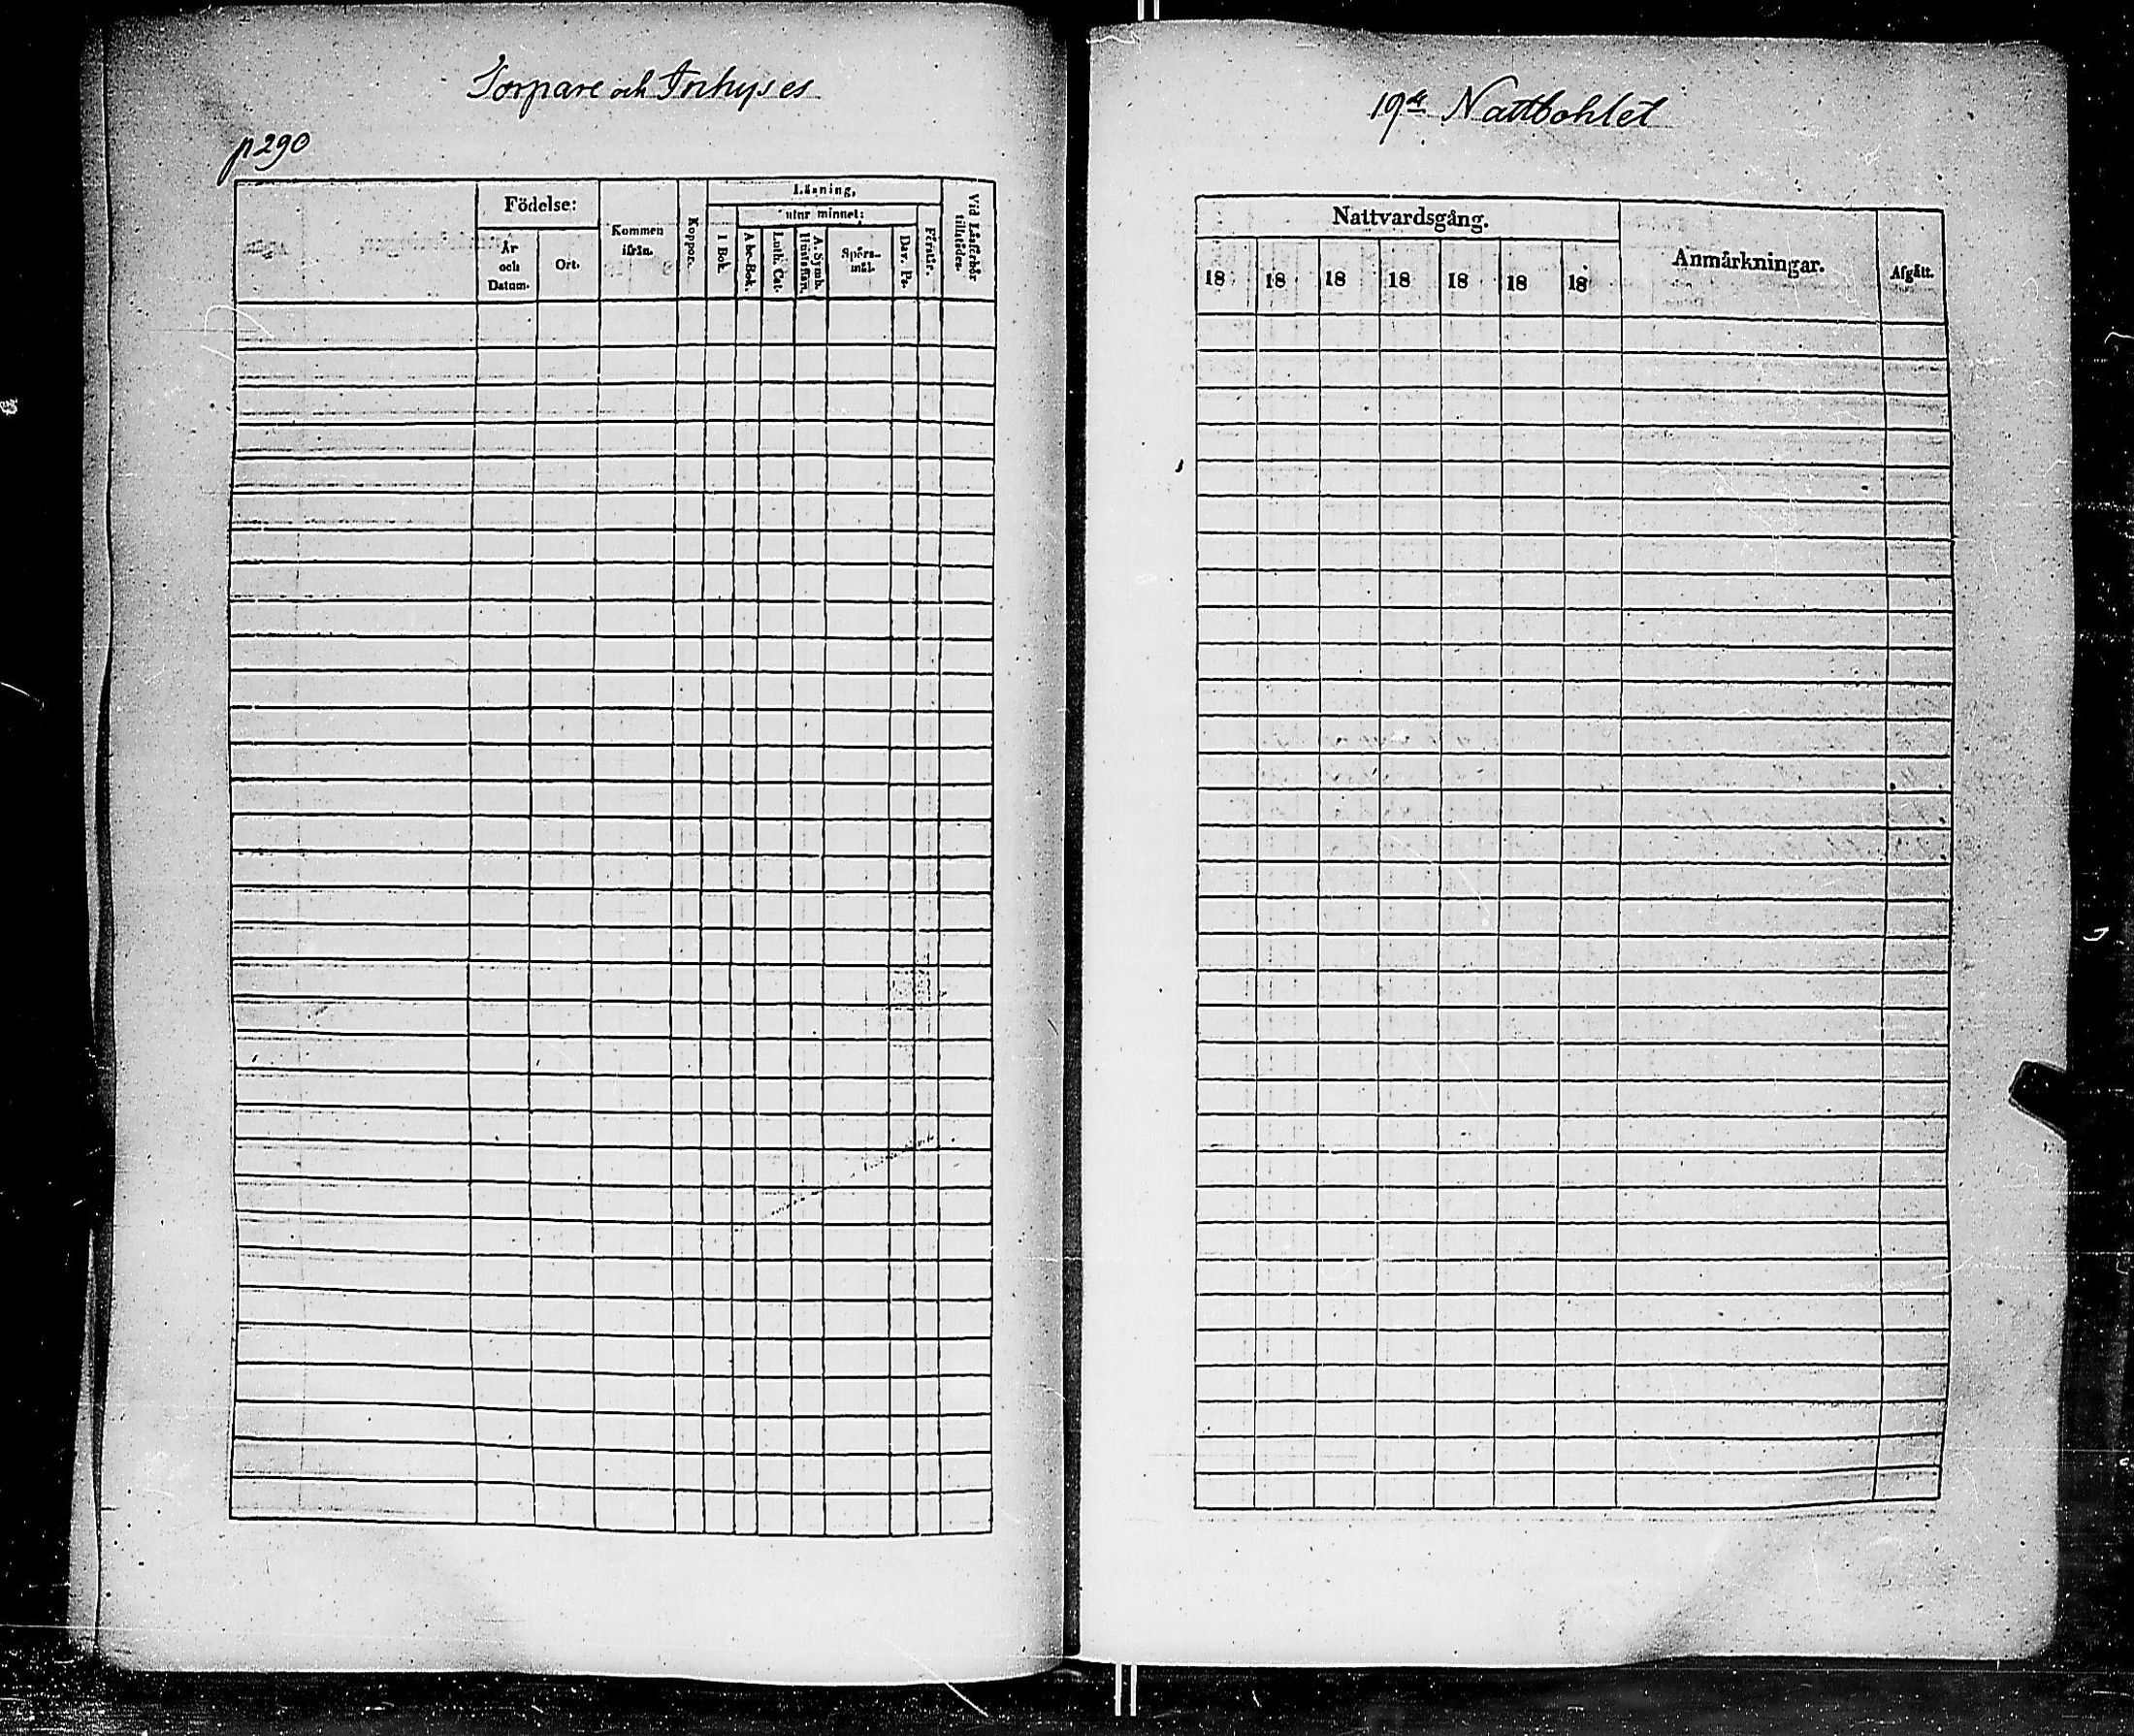 Torpare och Inhyses
p 290
Födelse:
År
och
Datum.
Ort.
Kommen
ifrån.
Koppor.
Läsning,
utur minnet:
I Bok.
Abc-Bok.
Luth. Cat.
A. Symb.
Hustaflan.
Spörs-
mål.
Dav. Ps.
Förstår.
Vid Läsförhör
tillstädes.
19de Nattbohlet
Nattvardsgång.
18 18 18 18 18 18 18
Anmärkningar.
Afgått.